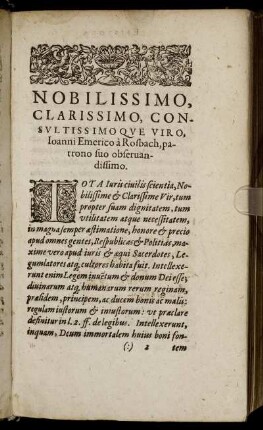 NOBILISSIMO,
CLARISSIMO, CON-
SVLTISSIMOQVE VIRO,
Ioanni Emerico à Rosbach, pa-
trono suo obseruan-
dissimo.
TOTA Iuris ciuilis scientia, No-
bilissime & Clarissime Vir, tum
propter suam dignitatem, tum
vtilitatem atque necessitatem,
in magna semper æstimatione, honore & precio
apud omnes gentes, Respublicas & Politias, ma-
xime vero apud iuris & æqui Sacerdotes, Le-
gumlatores atq; cultores habita fuit. Intellexe-
runt enim Legem inuẽtum & donum Dei esse,
diuinarum atq; humanarum rerum reginam,
præsidem, principem, ac ducem bonis ac malis:
regulam iustorum & iniustorum: vt præclare
definitur in l. 2. ff. de legibus. Intellexerunt,
inquam, Deum immortalem huius boni fon-
(:) 2 tem